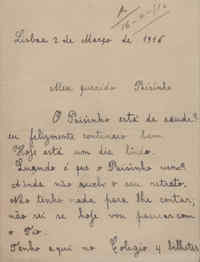 Lisboa 2 de Março de 1916
Meu querido Paisinho
O Paisinho está de saude?
eu felizmente continuo bem.
Hoje está um dia lindo.
Quando é que o Paisinho vem?
Ainda não recebi o seu retrato.
Não tenho nada para lhe contar,
não sei se hoje vou passear com
o Tio.
Tenho aqui no Colegio 4 bilhetes